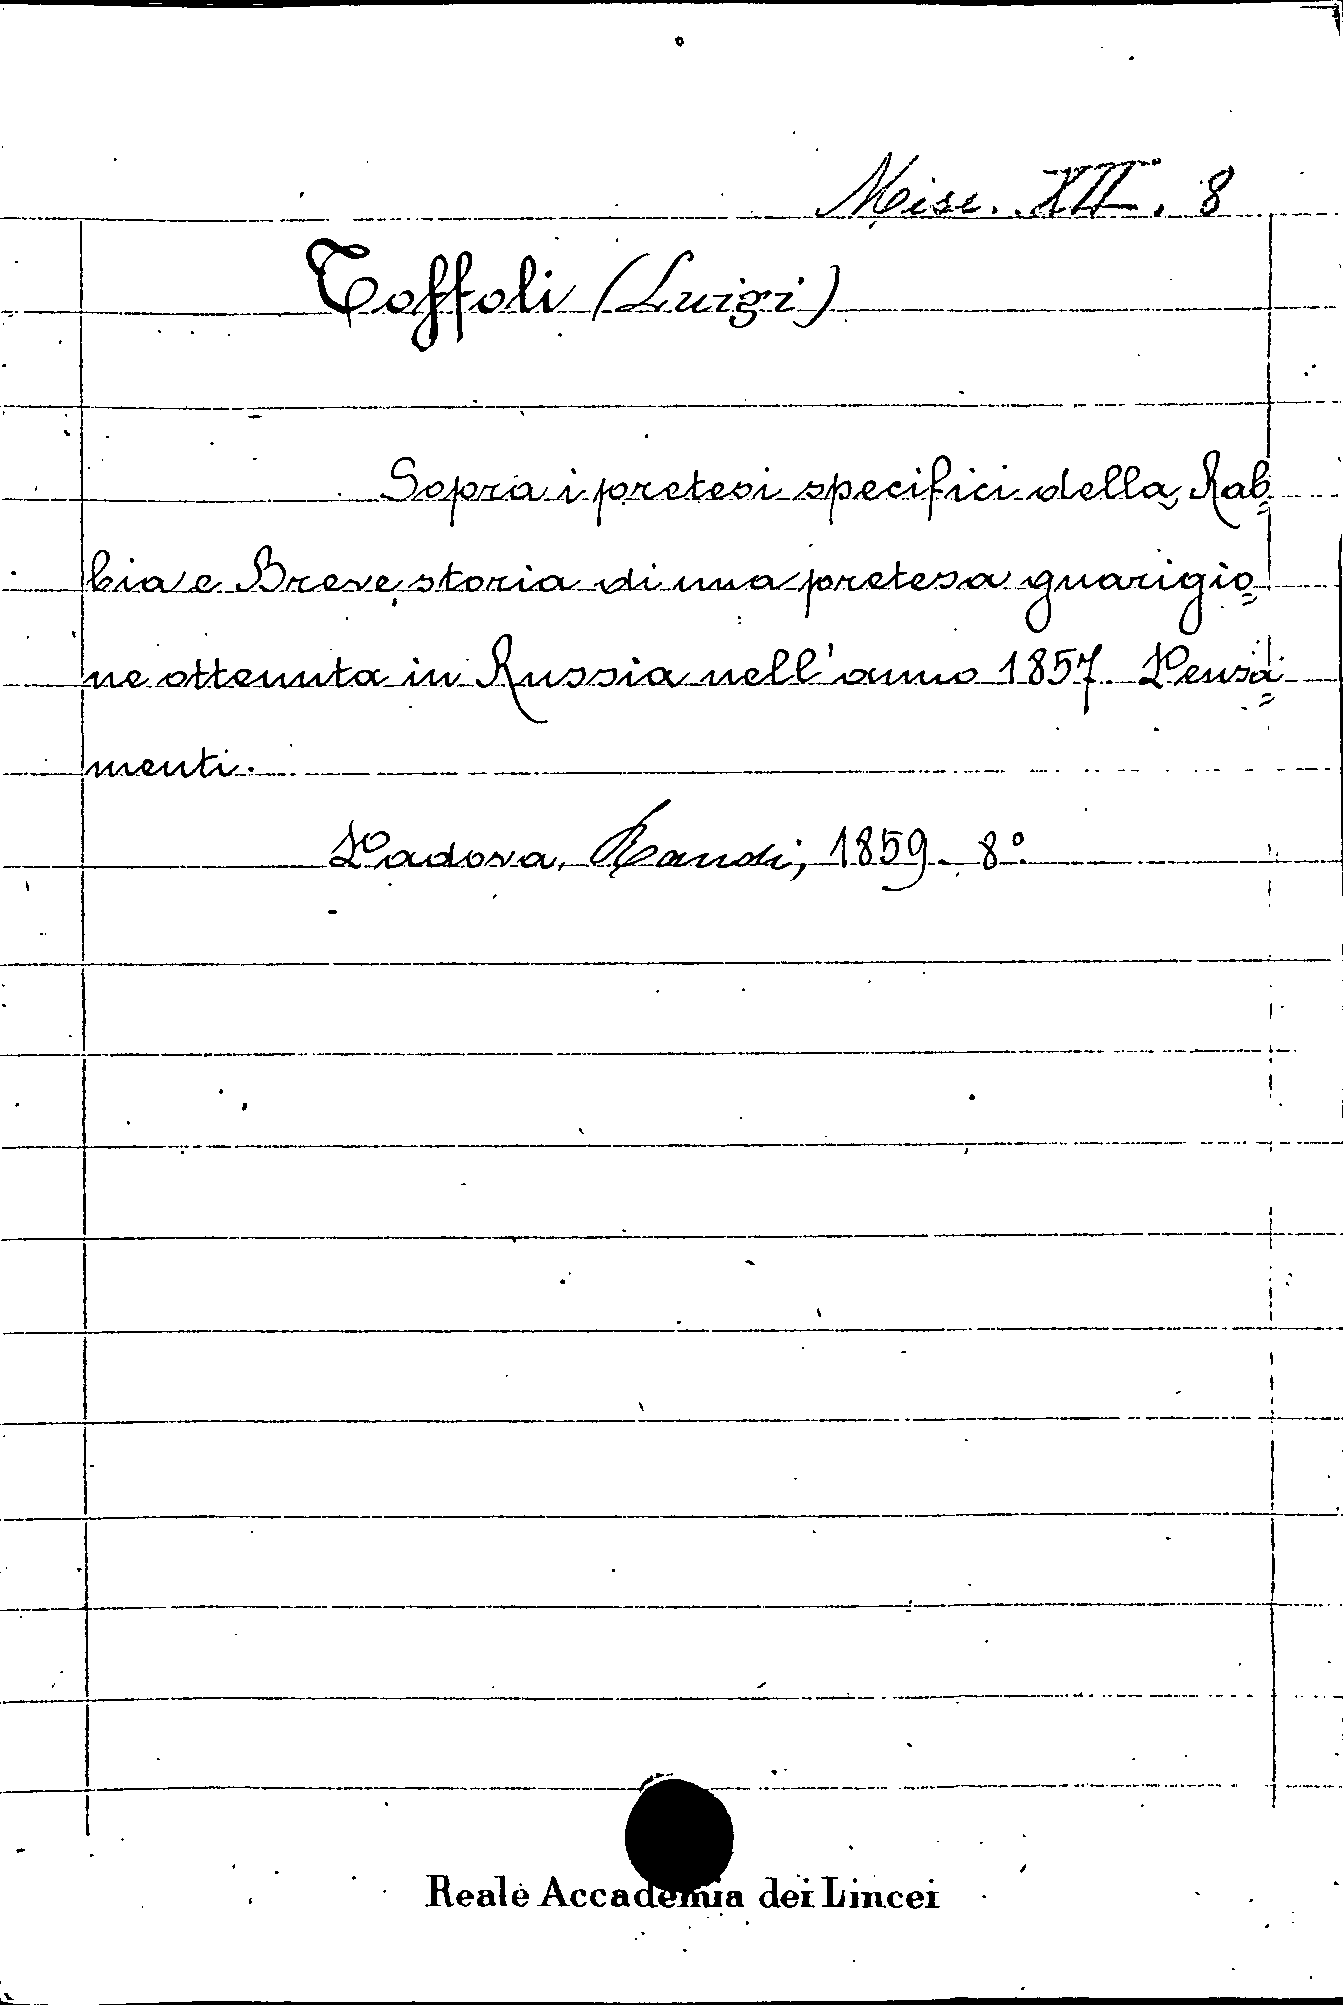 Misc. XII. 8
Toffoli (Luigi)
Sopra i pretesi specifici della Rab=
bia e Breve storia di una pretesa guarigio=
ne ottenuta in Russia nell'anno 1857. Pensa=
menti.
Padova, Randi, 1859. 8°.
Reale Accademia dei Lincei